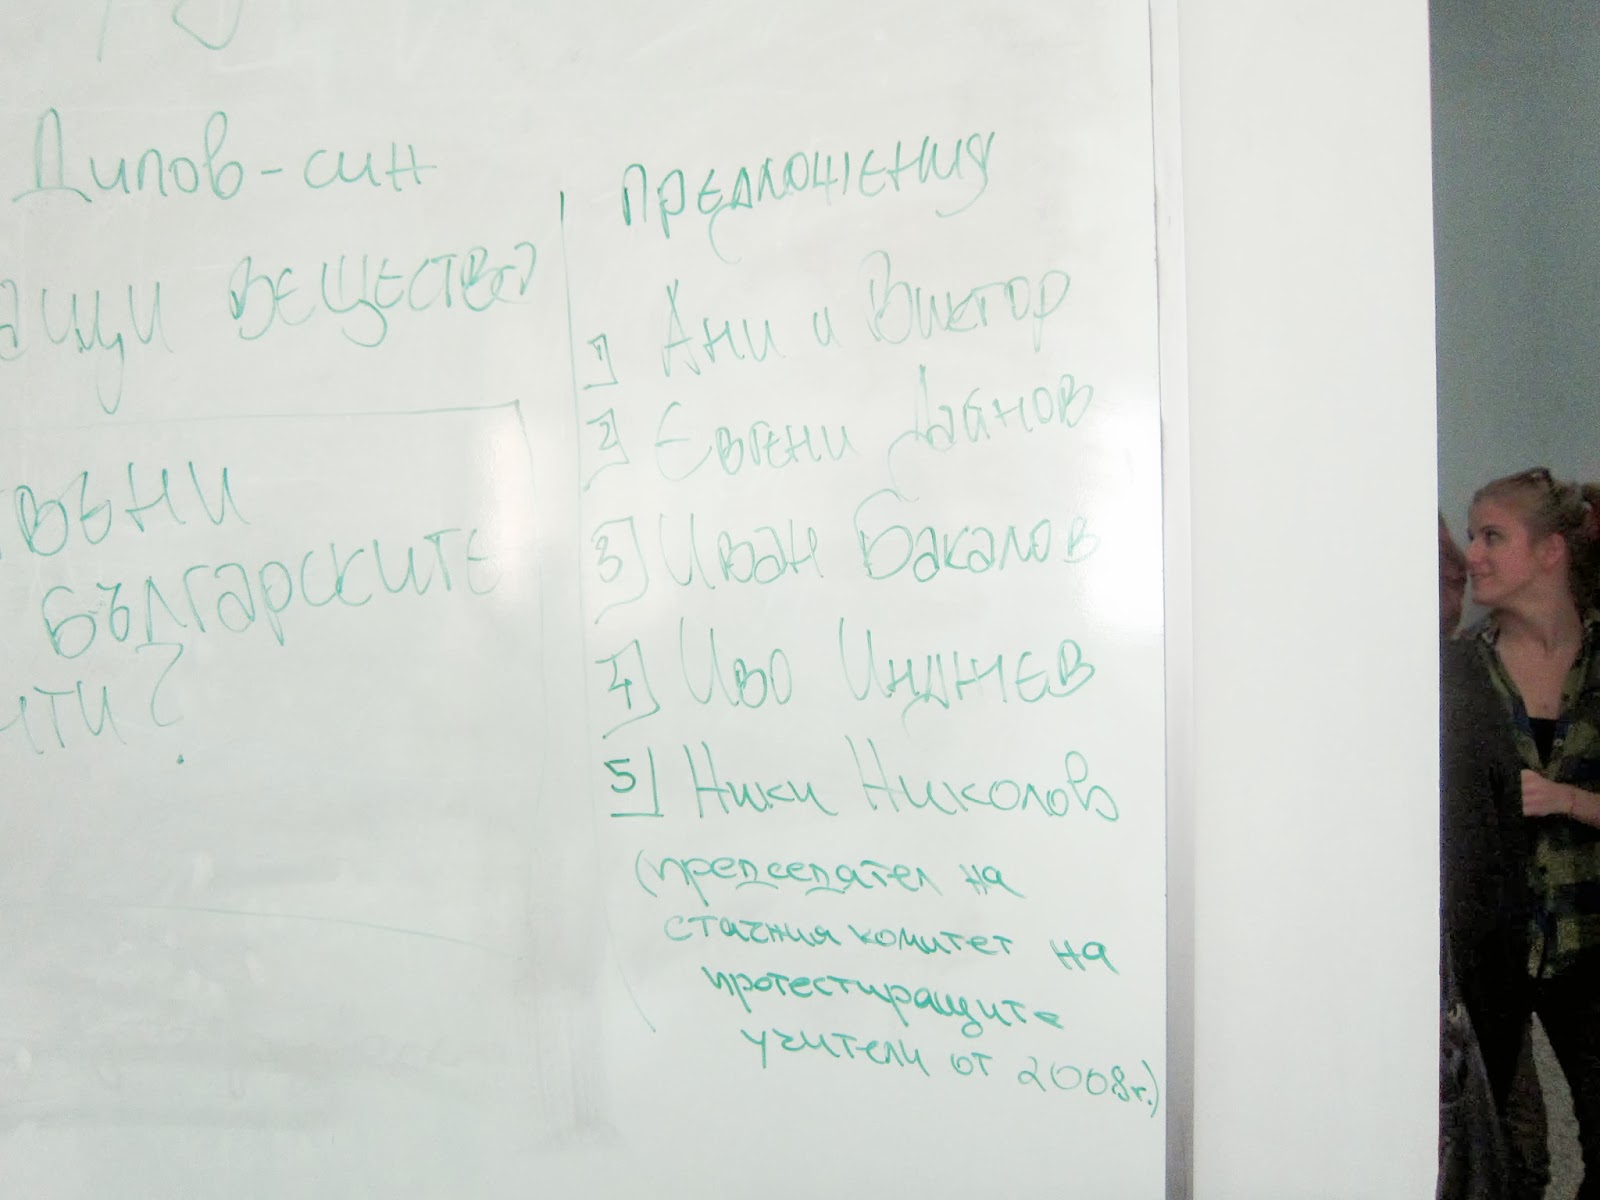 Дилов-син
ащи вещества
вени
българските
ити?
Предложения
1 Ани и Виктор
2 Евгени Дайнов
3 Иван Бакалов
4 Иво Инджев
5 Ники Николов
(председател на
стачния комитет на
протестиращите
учители от 2008г.)